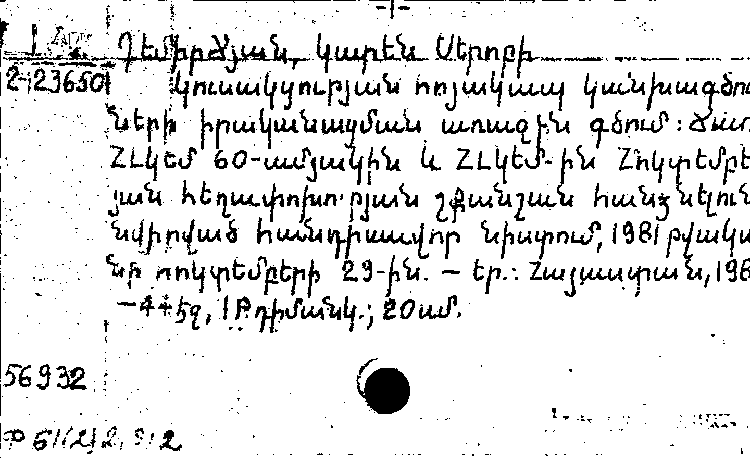 Դեմիրճյան, Կարեն Սերոբի
2-23650
Կուսակցության հոյակապ կանխագծու
ների իրականացման առաջին գծում: Ճառ
ՀԼԿԵՄ 60-ամյակին և ՀԼԿԵՄ-ին Հոկտեմբե
յան հեղափոխության շքանշան հանձնելուն
նվիրված հանդիսավոր նիստում, 1981 թվակա
նի հոկտեմբերի 29-ին. – Եր.: Հայաստան, 198
– 44 էջ, 1 թ. դիմանկ.; 20 սմ.
56932